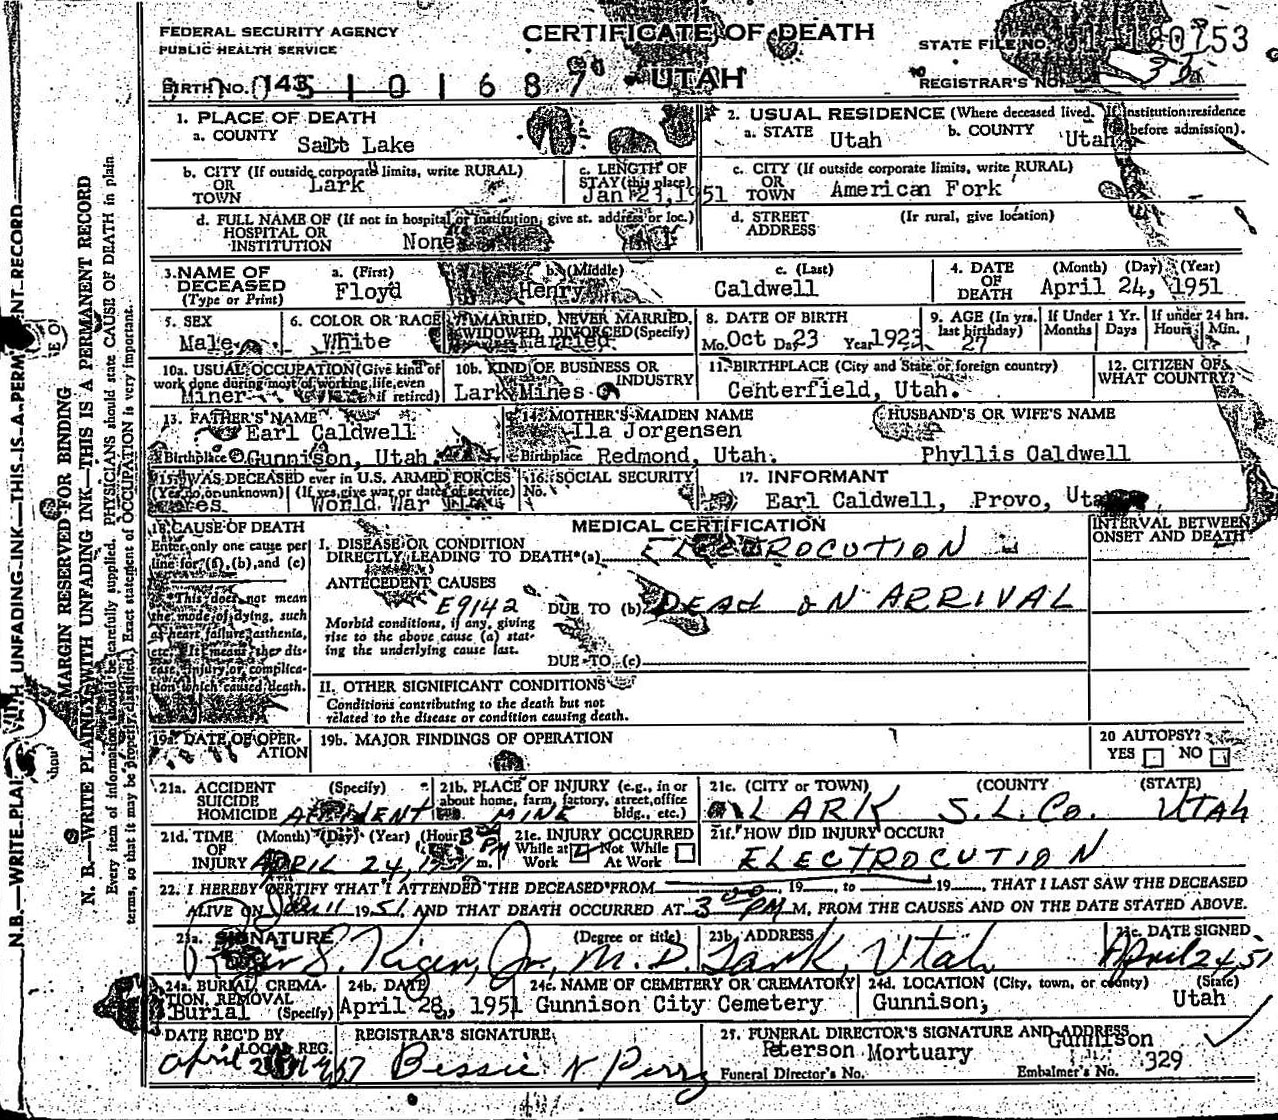 FEDERAL SECURITY AGENCY
PUBLIC HEALTH SERVICE
CERTIFICATE OF DEATH
UTAH
STATE FILE NO. 80753
REGISTRAR'S NO. 36
BIRTH NO. 143 5101687
1. PLACE OF DEATH
a. COUNTY Salt Lake
2. USUAL RESIDENCE (Where deceased lived. If institution: residence before admission).
a. STATE Utah b. COUNTY Utah
b. CITY (If outside corporate limits, write RURAL)
OR
TOWN Lark
c. LENGTH OF
STAY (this place)
Jan 23, 1951
c. CITY (If outside corporate limits, write RURAL)
OR
TOWN American Fork
d. FULL NAME OF (If not in hospital or institution, give st. address or loc.)
HOSPITAL OR
INSTITUTION None
d. STREET (If rural, give location)
ADDRESS
3. NAME OF
DECEASED
(Type or Print)
a. (First) Floyd
b. (Middle) Henry
c. (Last) Caldwell
4. DATE
OF
DEATH
(Month) (Day) (Year)
April 24, 1951
5. SEX
Male
6. COLOR OR RACE
White
7. MARRIED, NEVER MARRIED,
WIDOWED, DIVORCED (Specify)
Married
8. DATE OF BIRTH
Mo. Oct Day 23 Year 1923
9. AGE (In yrs. last birthday)
27
If Under 1 Yr.
Months Days
If under 24 hrs.
Hours Min.
10a. USUAL OCCUPATION (Give kind of
work done during most of working life, even
if retired)
Miner
10b. KIND OF BUSINESS OR
INDUSTRY
Lark Mines
11. BIRTHPLACE (City and State or foreign country)
Centerfield, Utah.
12. CITIZEN OF
WHAT COUNTRY?
13. FATHER'S NAME
Earl Caldwell
Birthplace Gunnison, Utah.
14. MOTHER'S MAIDEN NAME
Ila Jorgensen
Birthplace Redmond, Utah.
HUSBAND'S OR WIFE'S NAME
Phyllis Caldwell
15. WAS DECEASED ever in U.S. ARMED FORCES
(Yes, no, or unknown) (If yes, give war or dates of service)
Yes World War
16. SOCIAL SECURITY
No.
17. INFORMANT
Earl Caldwell, Provo, Utah
18. CAUSE OF DEATH
Enter only one cause per
line for (a), (b), and (c)
*This does not mean
the mode of dying, such
as heart failure, asthenia,
etc. It means the dis-
ease, injury or complica-
tion which caused death.
MEDICAL CERTIFICATION
INTERVAL BETWEEN
ONSET AND DEATH
I. DISEASE OR CONDITION
DIRECTLY LEADING TO DEATH*(a) ELECTROCUTION
ANTECEDENT CAUSES
E9142
DUE TO (b) DEAD ON ARRIVAL
Morbid conditions, if any, giving
rise to the above cause (a) stat-
ing the underlying cause last.
DUE TO (c)
II. OTHER SIGNIFICANT CONDITIONS
Conditions contributing to the death but not
related to the disease or condition causing death.
19a. DATE OF OPER-
ATION
19b. MAJOR FINDINGS OF OPERATION
20 AUTOPSY?
YES NO
21a. ACCIDENT (Specify)
SUICIDE
HOMICIDE ACCIDENT
21b. PLACE OF INJURY (e.g., in or
about home, farm, factory, street, office
bldg., etc.)
MINE
21c. (CITY or TOWN) (COUNTY) (STATE)
LARK S.L.Co. UTAH
21d. TIME (Month) (Day) (Year) (Hour)
OF
INJURY APRIL 24, 1951 3 PM m.
21e. INJURY OCCURRED
While at Work
Not While At Work
21f. HOW DID INJURY OCCUR?
ELECTROCUTION
22. I HEREBY CERTIFY THAT I ATTENDED THE DECEASED FROM 19, to 19, THAT I LAST SAW THE DECEASED
ALIVE ON 1951, AND THAT DEATH OCCURRED AT 3 00 PM M, FROM THE CAUSES AND ON THE DATE STATED ABOVE.
23a. SIGNATURE (Degree or title)
S. Kiger, Jr., M.D.
23b. ADDRESS
Lark, Utah
23c. DATE SIGNED
April 24, 51
24a. BURIAL, CREMA-
TION, REMOVAL
(Specify)
Burial
24b. DATE
April 28, 1951
24c. NAME OF CEMETERY OR CREMATORY
Gunnison City Cemetery
24d. LOCATION (City, town, or county) (State)
Gunnison, Utah
DATE REC'D BY
LOCAL REG.
April
REGISTRAR'S SIGNATURE
Bessie N Perry
25. FUNERAL DIRECTOR'S SIGNATURE AND ADDRESS
Gunnison
Peterson Mortuary
Funeral Director's No.
Embalmer's No. 329
MARGIN RESERVED FOR BINDING
N. B.—WRITE PLAINLY WITH UNFADING INK—THIS IS A PERMANENT RECORD
Every item of information should be carefully supplied. PHYSICIANS should state CAUSE OF DEATH in plain
terms, so that it may be properly classified. Exact statement of OCCUPATION is very important.
N.B.—WRITE PLAI WITH UNFADING INK—THIS IS A PERM ENT RECORD